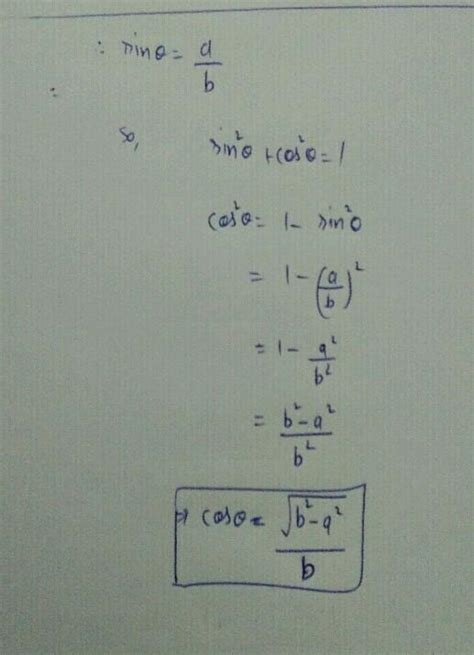 ∴ sinθ = a/b
:
So, sin²θ + cos²θ = 1
cos²θ = 1 - sin²θ
= 1 - (a/b)²
= 1 - a²/b²
= b² - a²/b²
⇒ cosθ = √b² - a²/b